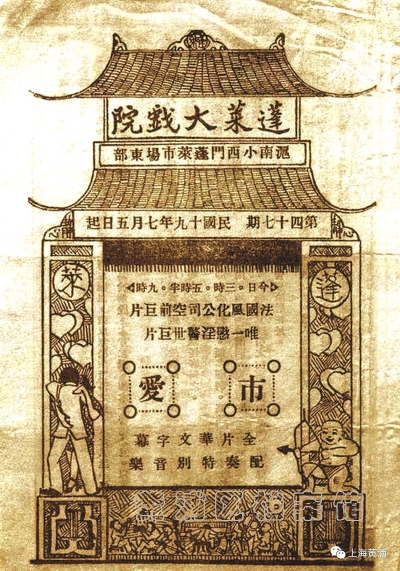 蓬萊大戲院
滬南小西門蓬萊市場東部
第四十七期 民國十九年七月五日起
蓬
萊
今日。三時。五時半。九時
法國風化公司空前巨片
唯一懲淫醫世巨片
市愛
全片華文字幕
配奏特別音樂
上海黄浦